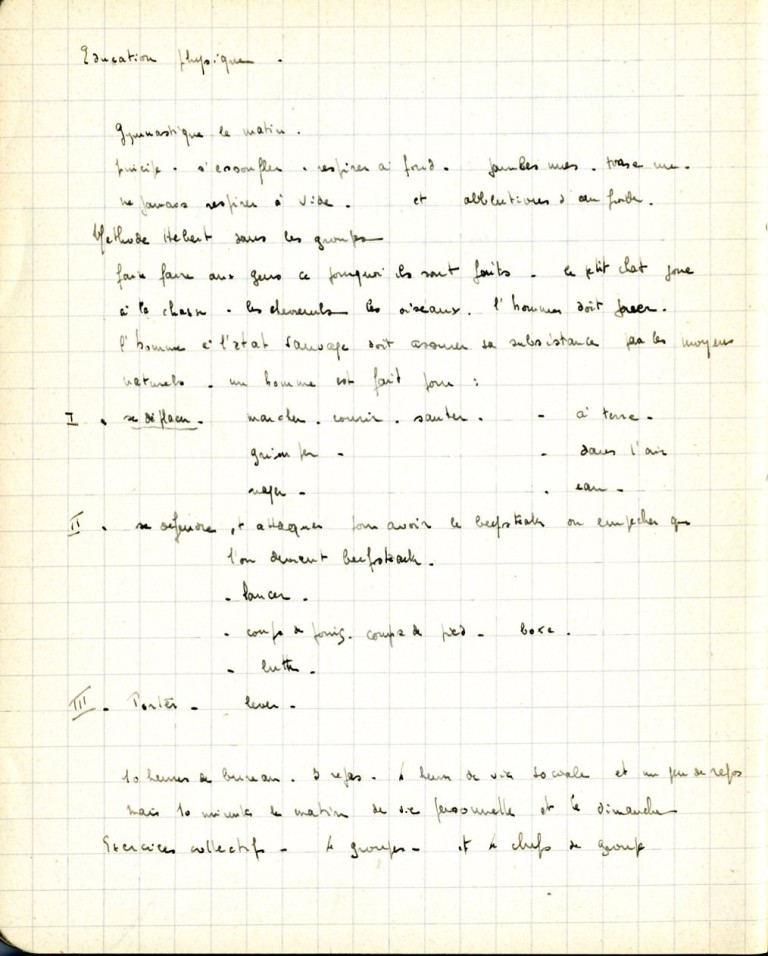 Education physique.
Gymnastique le matin.
principe. s'essouffler. respirer à fond. jambes nues. torse nu.
ne jamais respirer à vide. et abblutions d'eau froide.
Méthode Hebert dans les groupes
faire faire aux gens ce pourquoi ils sont faits. le petit chat joue
à la chasse. les les oiseaux. l'homme doit jouer.
l'homme à l'état sauvage doit assurer sa subsistance par les moyens
naturels. un homme est fait pour :
I. se déplacer. marcher. courir. sauter. - à terre.
grimper - - dans l'air
nager - . eau -
II. se défendre et attaquer pour avoir le beefsteak ou empêcher que
l'on devient beefsteack.
- lancer.
- coups de poing. coups de pied - boxe.
- lutte.
III. Porter - lever -
10 heures de bureau. 3 repas. 4 heures de vie sociale et un peu de repos
mais 10 minutes le matin de vie personnelle et le dimanche
Exercices collectifs - 4 groupes - et 4 chefs de groupe